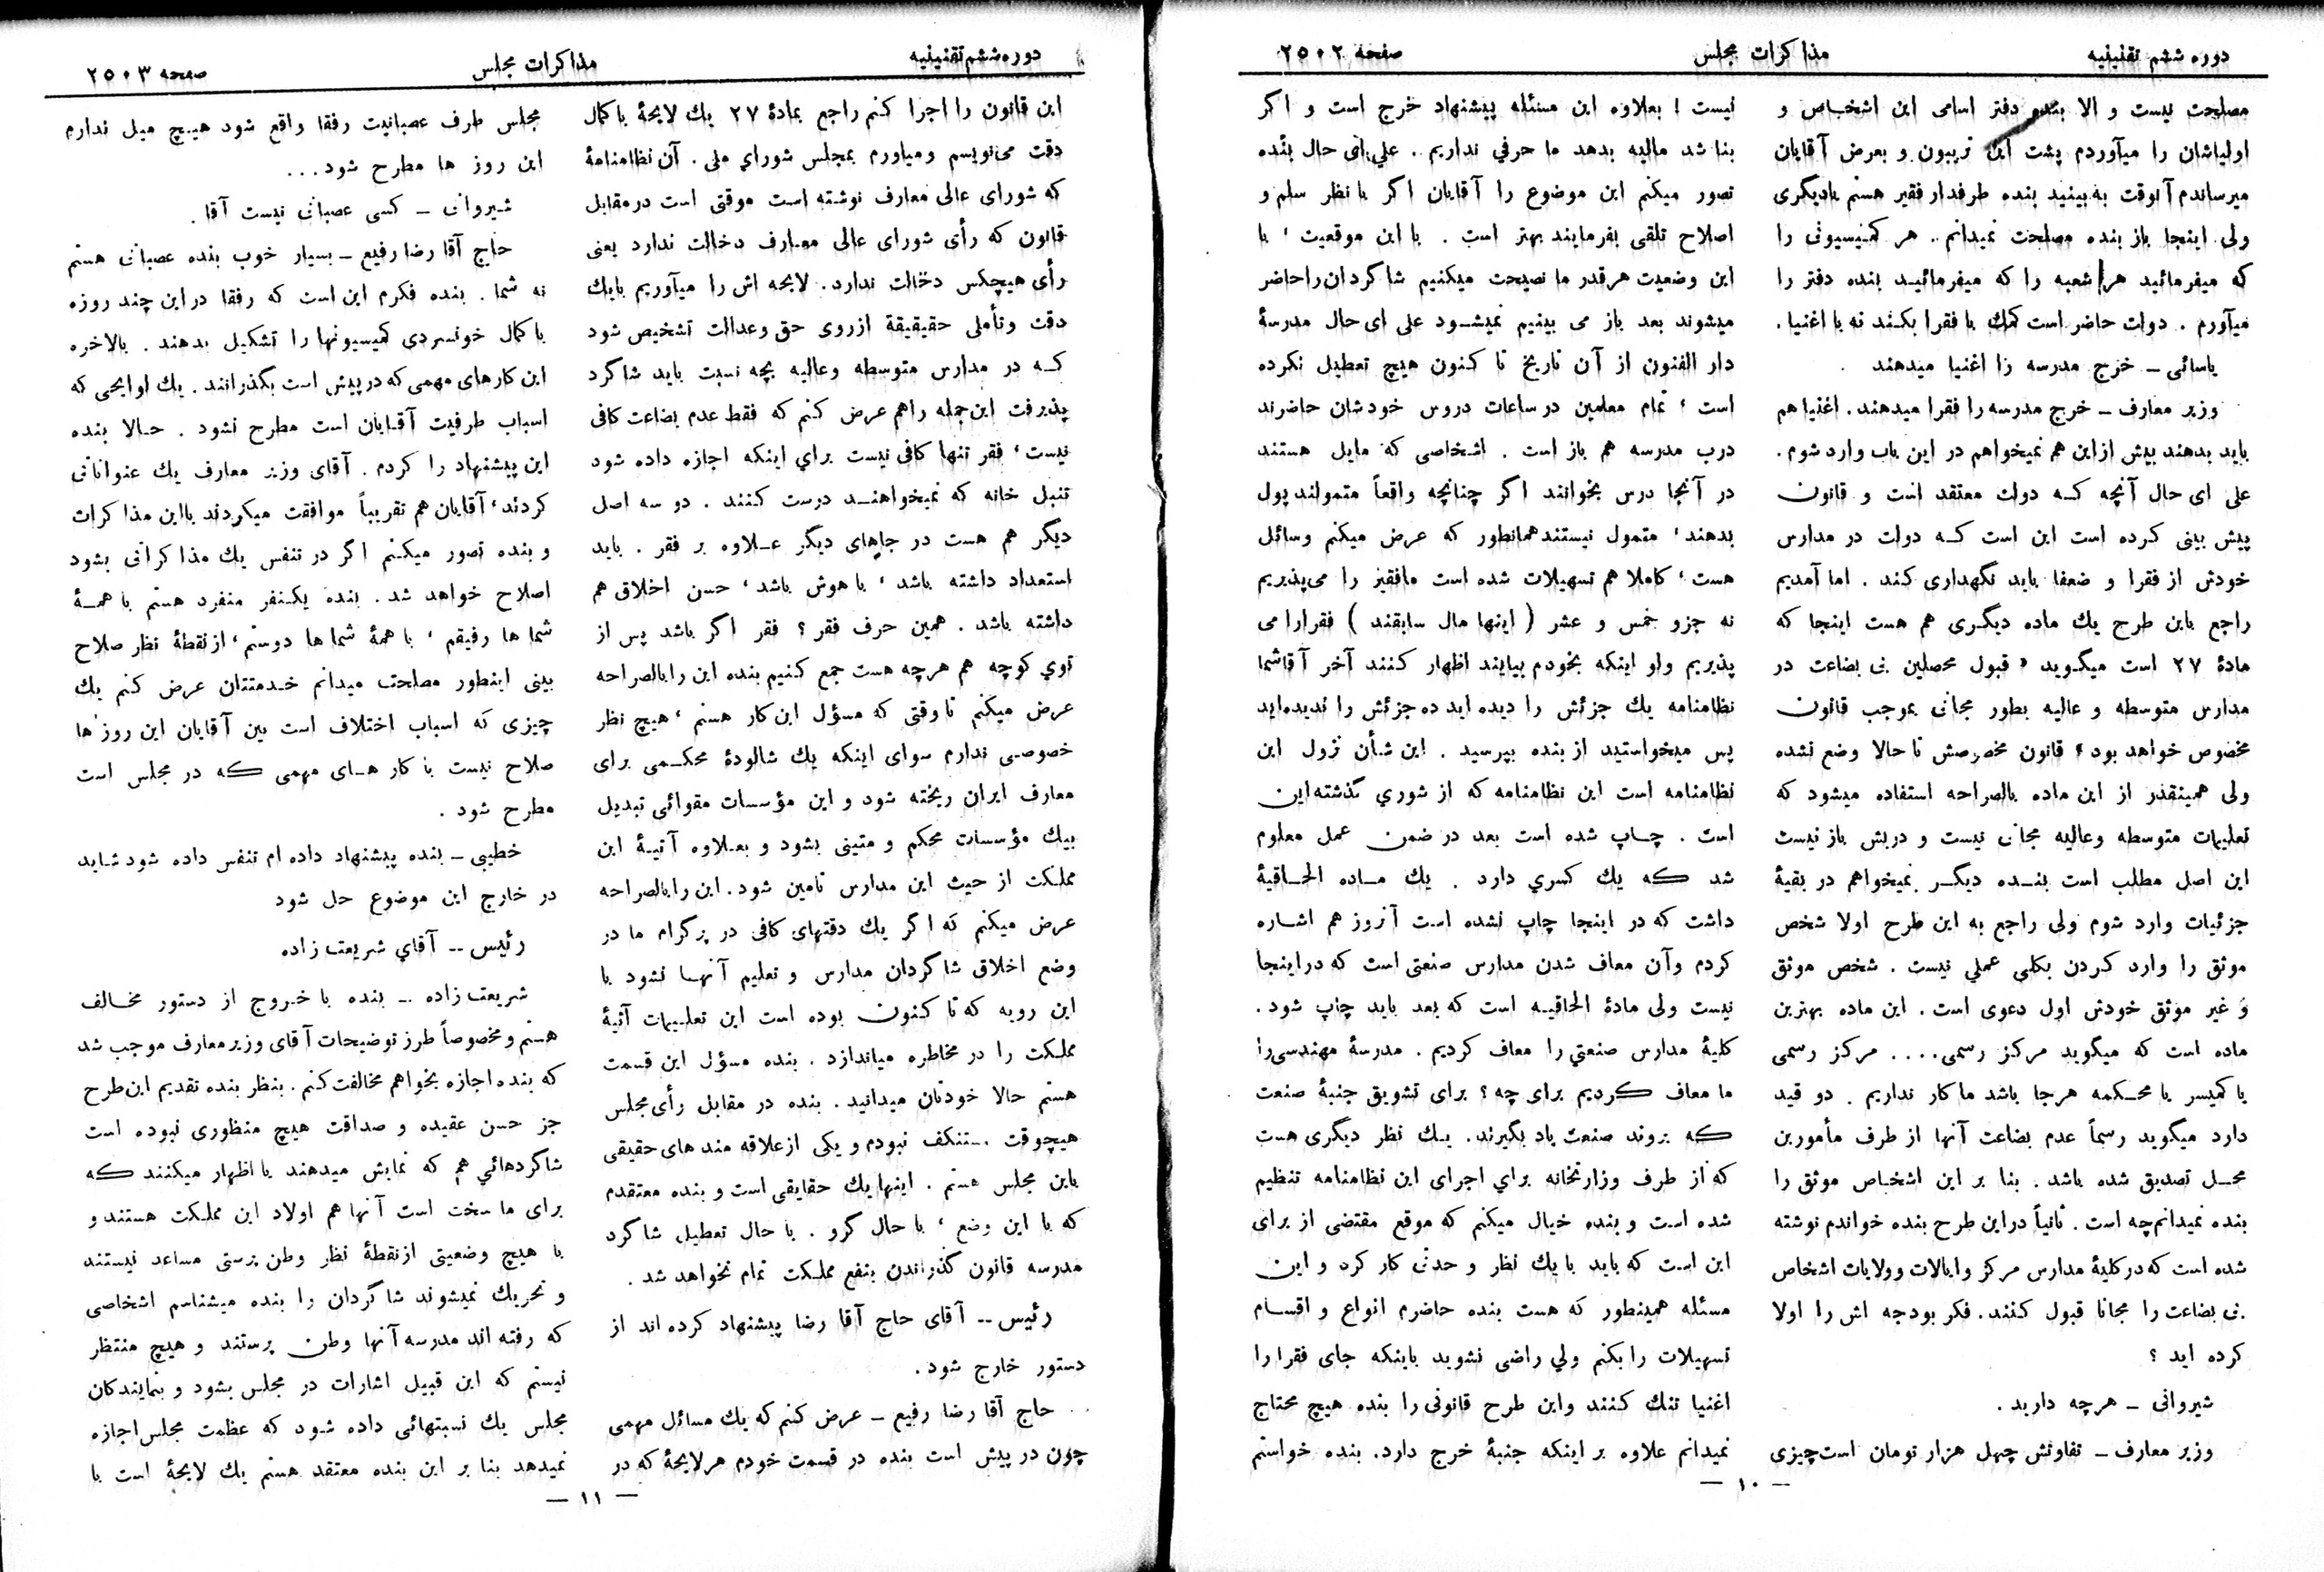 دوره ششم تقنینیه
مذاکرات مجلس
صفحه ۲۵۰۲
مصلحت نیست و الا بنده دفتر اسامی این اشخاص و
اولیاشان را میآوردم پشت این تریبون و بعرض آقایان
میرساندم آنوقت به بینید بنده طرفدار فقیر هستم یادیگری
ولی اینجا باز بنده مصلحت نمیدانم. هر کمیسیونی را
که میفرمائید هر شعبه را که میفرمائید بنده دفتر را
میآورم . دولت حاضر است کمك با فقرا بکند نه با اغنیا.
یاسائی ــ خرج مدرسه را اغنیا میدهند
وزیر معارف ــ خرج مدرسه را فقرا میدهند. اغنیا هم
باید بدهند بیش از این هم نمیخواهم در این باب وارد شوم.
علی ای حال آنچه که دولت معتقد است و قانون
پیش بینی کرده است این است که دولت در مدارس
خودش از فقرا و ضعفا باید نگهداری کند . اما آمدیم
راجع باین طرح یك ماده دیگری هم هست اینجا که
مادهٔ ۲۷ است میگوید « قبول محصلین بی بضاعت در
مدارس متوسطه و عالیه بطور مجانی بموجب قانون
مخصوص خواهد بود » قانون مخصوصش تا حالا وضع نشده
ولی همینقدر از این ماده بالصراحه استفاده میشود که
تعلیمات متوسطه وعالیه مجانی نیست و دربش باز نیست
این اصل مطلب است بنده دیگر نمیخواهم در بقیهٔ
جزئیات وارد شوم ولی راجع به این طرح اولا شخص
موثق را وارد کردن بکلی عملی نیست . شخص موثق
و غیر موثق خودش اول دعوی است . این ماده بهترین
ماده است که میگوید مرکز رسمی.... مرکز رسمی
یا کمیسر یا محکمه هرجا باشد ما کار نداریم . دو قید
دارد میگوید رسماً عدم بضاعت آنها از طرف مأمورین
محل تصدیق شده باشد . بنا بر این اشخاص موثق را
بنده نمیدانم چه است . ثانیاً در این طرح بنده خواندم نوشته
شده است که در کلیهٔ مدارس مرکز و ایالات وولایات اشخاص
بی بضاعت را مجانا قبول کنند. فکر بودجه اش را اولا
کرده اید ؟
شیروانی ــ هرچه دارید .
وزیر معارف ــ تفاوتش چهل هزار تومان است چیزی
نیست ! بعلاوه این مسئله پیشنهاد خرج است و اگر
بنا شد مالیه بدهد ما حرفی نداریم . علی ای حال بنده
تصور میکنم این موضوع را آقایان اگر با نظر سلم و
اصلاح تلقی بفرمایند بهتر است . با این موقعیت ، با
این وضعیت هر قدر ما نصیحت میکنیم شاگردان را حاضر
میشوند بعد باز می بینیم نمیشود علی ای حال مدرسهٔ
دار الفنون از آن تاریخ تا کنون هیچ تعطیل نکرده
است ، تمام معلمین در ساعات دروس خودشان حاضرند
درب مدرسه هم باز است . اشخاصی که مایل هستند
در آنجا درس بخوانند اگر چنانچه واقعاً متمولند پول
بدهند ، متمول نیستند همانطور که عرض میکنم وسائل
هست ، کاملا هم تسهیلات شده است ما فقیر را می پذیریم
نه جزو خمس و عشر ( اینها مال سابقند ) فقرا را می
پذیریم ولو اینکه بخودم بیایند اظهار کنند آخر آقا شما
نظامنامه یك جزئش را دیده اید ده جزئش را ندیده اید
پس میخواستید از بنده بپرسید . این شأن نزول این
نظامنامه است این نظامنامه که از شوری گذشته این
است . چاپ شده است بعد در ضمن عمل معلوم
شد که یك کسری دارد . یك ماده الحاقیهٔ
داشت که در اینجا چاپ نشده است آنروز هم اشاره
کردم وآن معاف شدن مدارس صنعتی است که در اینجا
نیست ولی مادهٔ الحاقیه است که بعد باید چاپ شود .
کلیهٔ مدارس صنعتی را معاف کردیم . مدرسهٔ مهندسی را
ما معاف کردیم برای چه ؟ برای تشویق جنبهٔ صنعت
که بروند صنعت یاد بگیرند. یك نظر دیگری هست
که از طرف وزارتخانه برای اجرای این نظامنامه تنظیم
شده است و بنده خیال میکنم که موقع مقتضی از برای
این است که باید با یك نظر و حدتی کار کرد و این
مسئله همینطور که هست بنده حاضرم انواع و اقسام
تسهیلات را بکنم ولی راضی نشوید باینکه جای فقرا را
اغنیا تنك کنند واین طرح قانونی را بنده هیچ محتاج
نمیدانم علاوه بر اینکه جنبهٔ خرج دارد. بنده خواستم
— ۱۰ —
دوره ششم تقنینیه
مذاکرات مجلس
صفحه ۲۵۰۳
این قانون را اجرا کنم راجع بمادهٔ ۲۷ یك لایحهٔ با کمال
دقت می نویسم ومیاورم بمجلس شورای ملی . آن نظامنامهٔ
که شورای عالی معارف نوشته است موقتی است در مقابل
قانون که رأی شورای عالی معارف دخالت ندارد یعنی
رأی هیچکس دخالت ندارد. لایحه اش را میآوریم بایك
دقت وتأملی حقیقیة ازروی حق وعدالت تشخیص شود
که در مدارس متوسطه وعالیه بچه نسبت باید شاگرد
پذیرفت این جمله راهم عرض کنم که فقط عدم بضاعت کافی
نیست ، فقر تنها کافی نیست برای اینکه اجازه داده شود
تنبل خانه که نمیخواهند درست کنند . دو سه اصل
دیگر هم هست در جاهای دیگر علاوه بر فقر . باید
استعداد داشته باشد ، با هوش باشد ، حسن اخلاق هم
داشته باشد . همین حرف فقر ؟ فقر اگر باشد پس از
توی کوچه هم هرچه هست جمع کنیم بنده این را بالصراحه
عرض میکنم تا وقتی که مسؤل این کار هستم ، هیچ نظر
خصوصی ندارم سوای اینکه یك شالودهٔ محکمی برای
معارف ایران ریخته شود و این مؤسسات مقوائی تبدیل
بیك مؤسسات محکم و متینی بشود و بعلاوه آتیهٔ این
مملکت از حیث این مدارس تامین شود. این را بالصراحه
عرض میکنم که اگر یك دقتهای کافی در پرگرام ما در
وضع اخلاق شاگردان مدارس و تعلیم آنها نشود با
این رویه که تا کنون بوده است این تعلیمات آتیهٔ
مملکت را در مخاطره میاندازد . بنده مسؤل این قسمت
هستم حالا خودتان میدانید. بنده در مقابل رأی مجلس
هیچوقت مستنکف نبودم و یکی از علاقه مند های حقیقی
باین مجلس هستم . اینها یك حقایقی است و بنده معتقدم
که با این وضع ، با حال گرو . با حال تعطیل شاگرد
مدرسه قانون گذراندن بنفع مملکت تمام نخواهد شد .
رئیس -- آقای حاج آقا رضا پیشنهاد کرده اند از
دستور خارج شود.
حاج آقا رضا رفیع ــ عرض کنم که یك مسائل مهمی
چون در پیش است بنده در قسمت خودم هر لایحهٔ که در
مجلس طرف عصبانیت رفقا واقع شود هیچ میل ندارم
این روز ها مطرح شود...
شیروانی ــ کسی عصبانی نیست آقا .
حاج آقا رضا رفیع ــ بسیار خوب بنده عصبانی هستم
نه شما . بنده فکرم این است که رفقا در این چند روزه
با کمال خونسردی کمیسیونها را تشکیل بدهند . بالاخره
این کارهای مهمی که در پیش است بگذرانند . یك لوایحی که
اسباب طرفیت آقایان است مطرح نشود . حالا بنده
این پیشنهاد را کردم . آقای وزیر معارف یك عنواناتی
کردند ، آقایان هم تقریباً موافقت میکردند بااین مذاکرات
و بنده تصور میکنم اگر در تنفس یك مذاکراتی بشود
اصلاح خواهد شد . بنده یکنفر منفرد هستم با همهٔ
شما ها رفیقم ، با همهٔ شما ها دوستم ، از نقطهٔ نظر صلاح
بینی اینطور مصلحت میدانم خدمتتان عرض کنم یك
چیزی که اسباب اختلاف است بین آقایان این روزها
صلاح نیست با کار های مهمی که در مجلس است
مطرح شود .
خطیبی ــ بنده پیشنهاد داده ام تنفس داده شود شاید
در خارج این موضوع حل شود
رئیس -- آقای شریعت زاده
شریعت زاده -- بنده با خروج از دستور مخالف
هستم و مخصوصاً طرز توضیحات آقای وزیر معارف موجب شد
که بنده اجازه بخواهم مخالفت کنم . بنظر بنده تقدیم این طرح
جز حسن عقیده و صداقت هیچ منظوری نبوده است
شاگردهائی هم که نمایش میدهند یا اظهار میکنند که
برای ما سخت است آنها هم اولاد این مملکت هستند و
با هیچ وضعیتی از نقطهٔ نظر وطن پرستی مساعد نیستند
و تحریك نمیشوند شاگردان را بنده میشناسم اشخاصی
که رفته اند مدرسه آنها وطن پرستند و هیچ منتظر
نیستم که این قبیل اشارات در مجلس بشود و بنمایندگان
مجلس یك نسبتهائی داده شود که عظمت مجلس اجازه
نمیدهد بنا بر این بنده معتقد هستم یك لایحهٔ است با
— ۱۱ —